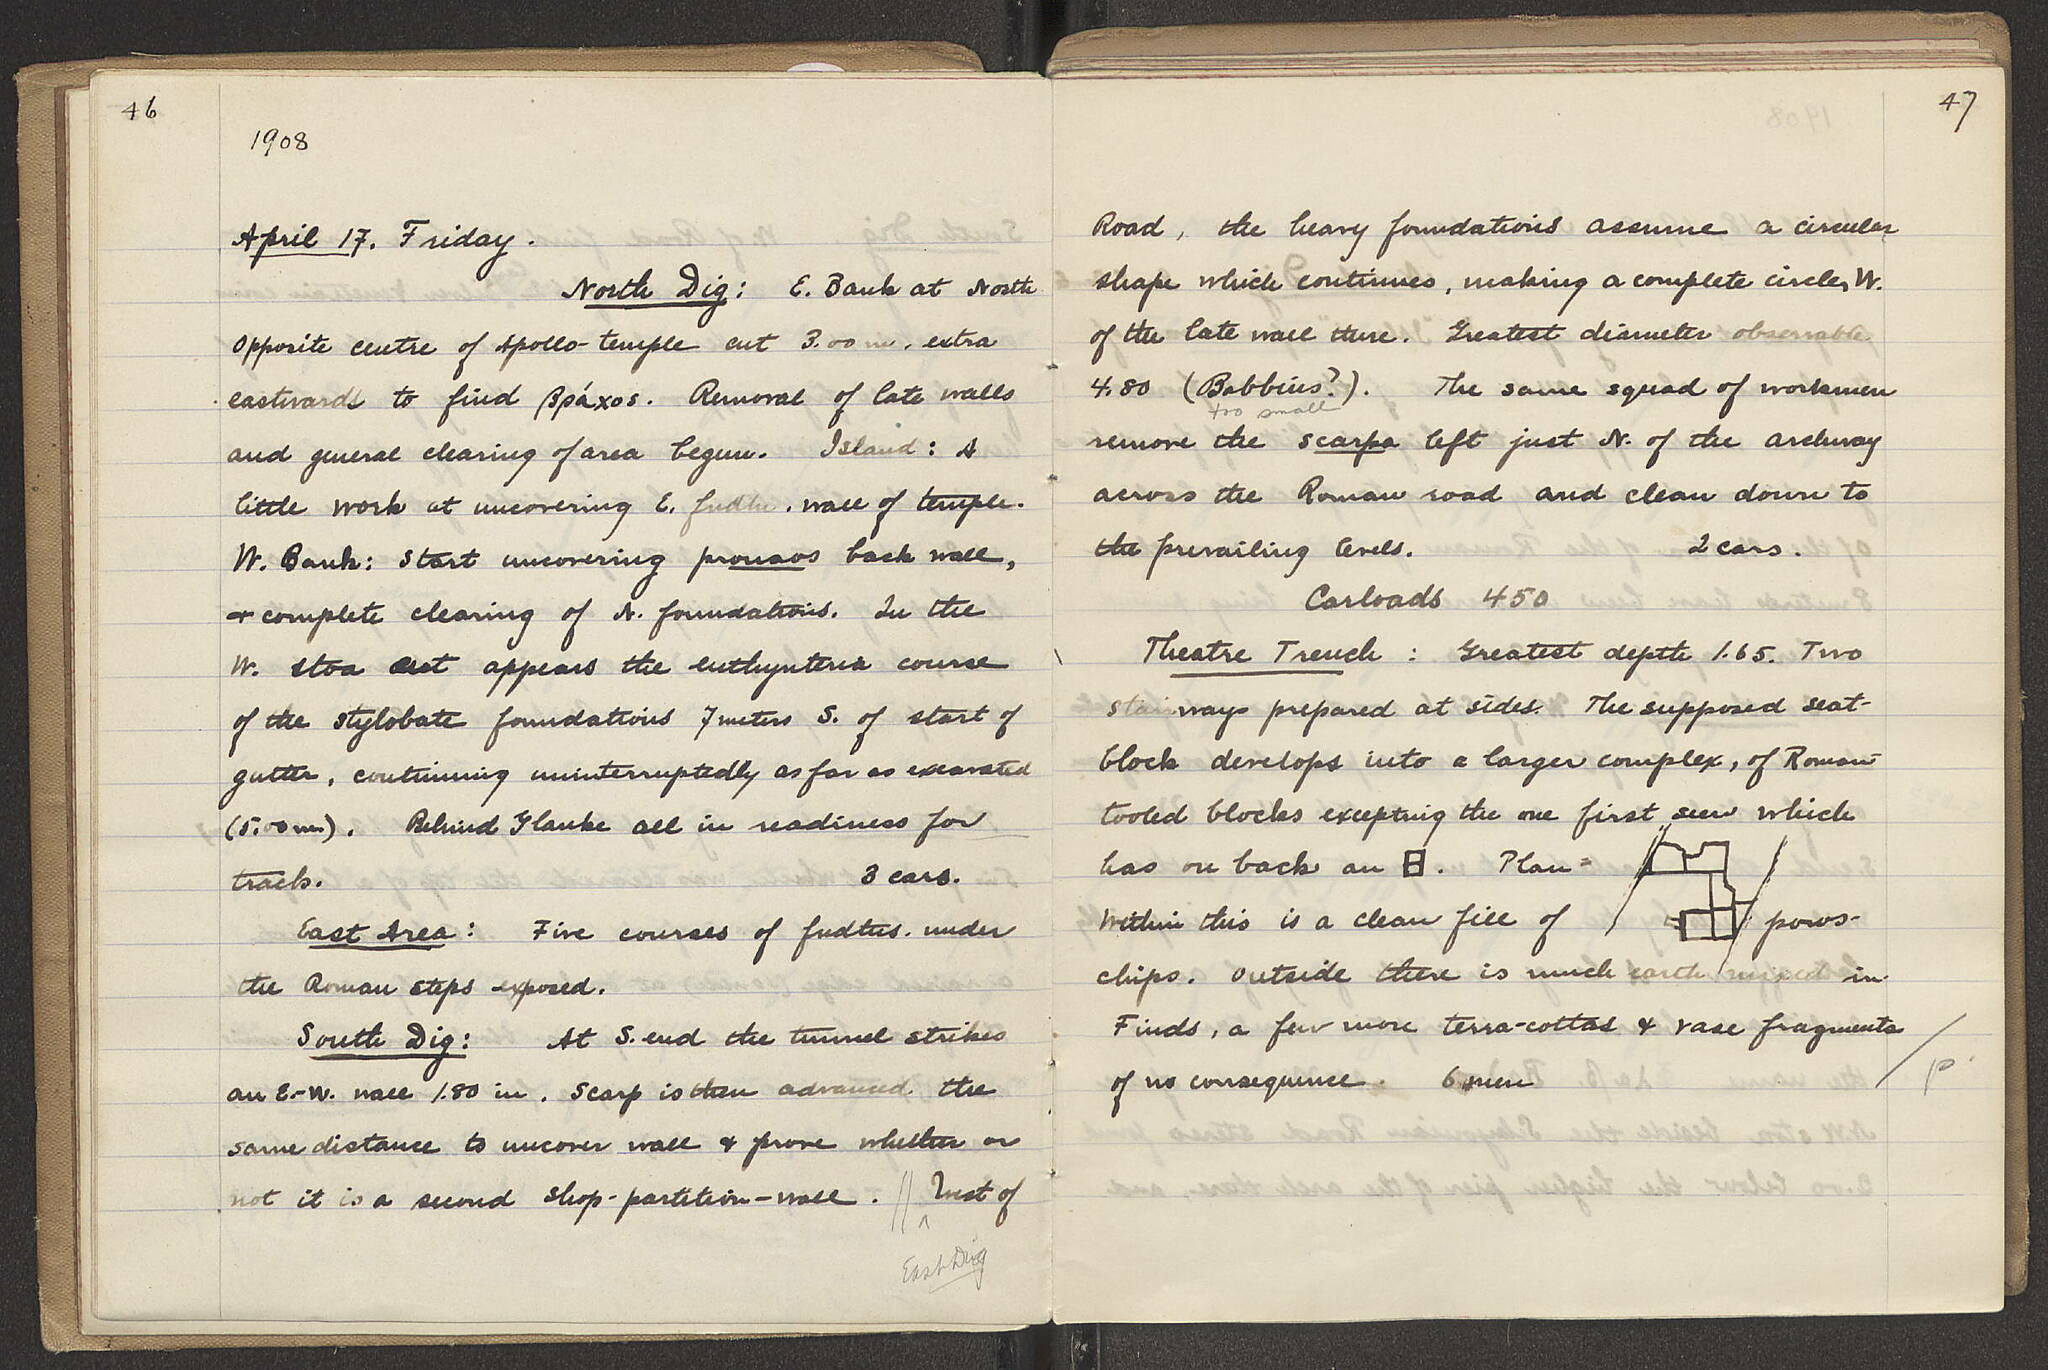 46
1908
April 17. Friday.
North Dig: E. Bank at North
opposite centre of Apollo-temple cut 3.00 m. extra
eastwards to find βράχος. Removal of late walls
and general clearing of area begun. Island: A
little work at uncovering E. fndtn. wall of temple.
W. Bank: Start uncovering pronaos back wall,
+ complete clearing of N. foundations. In the
W. stoa appears the euthynteria course
of the stylobate foundations 7 meters S. of start of
gutter, continuing uninterruptedly as far as excavated
(5.00 m.). Behind Glauke all in readiness for
track. 3 cars.
East Area: Five courses of fndtns. under
the Roman steps exposed.
South Dig: At S. end the tunnel strikes
an E.-W. wall 1.80 in. Scarp is then advanced the
same distance to uncover wall & prove whether or
not it is a second shop-partition-wall. // Just of
^
East Dig
47
Road, the heavy foundations assume a circular
shape which continues, making a complete circle, W.
of the late wall there. Greatest diameter observable
4.80 (Babbius?). The same squad of workmen
too small
remove the scarpa left just N. of the archway
across the Roman road and clean down to
the prevailing levels. 2 cars.
Carloads 450
Theatre Trench: Greatest depth 1.65. Two
stairways prepared at sides. The supposed seat-
block develops into a larger complex, of Roman
tooled blocks excepting the one first seen which
has on back an. Plan =
Within this is a clean fill of poros-
chips. Outside there is much earth mixed in.
Finds, a few more terra-cottas & vase fragments
of no consequence. 6 men
/
p